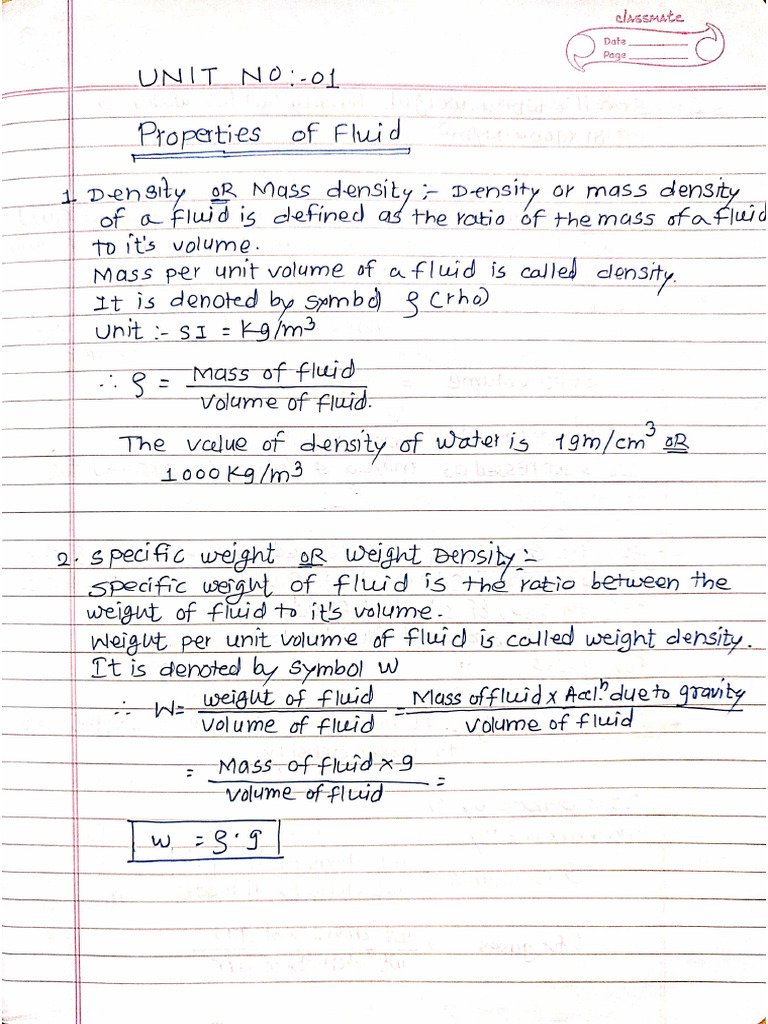 classmate
Date
Page
UNIT NO:-01
Properties of Fluid
1. Density OR Mass density :- Density or mass density
of a fluid is defined as the ratio of the mass of a fluid
to it's volume.
Mass per unit volume of a fluid is called density.
It is denoted by symbol ρ (rho)
Unit :- SI = Kg/m³
∴ ρ = Mass of fluid / Volume of fluid.
The value of density of water is 1gm/cm³ OR
1000Kg/m³
2. Specific weight OR Weight Density :-
Specific weight of fluid is the ratio between the
weight of fluid to it's volume.
Weight per unit volume of fluid is called weight density.
It is denoted by symbol W
∴ W = weight of fluid / volume of fluid = Mass of fluid x Accl.n due to gravity / Volume of fluid
= Mass of fluid x g / Volume of fluid =
w = ρ·g